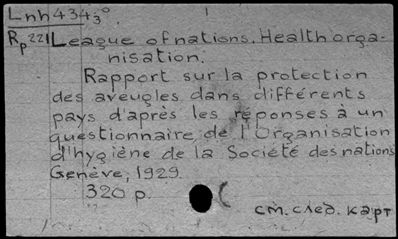 Lnh 434 3°
Rp221 League of nations. Health orga-
nisation.
Rapport sur la protection
des aveugles dans différents
pays d'après les réponses à un
questionnaire de l'Organisation
d'hygiène de la Société des nations
Genève, 1929.
320 p.
см. след. карт